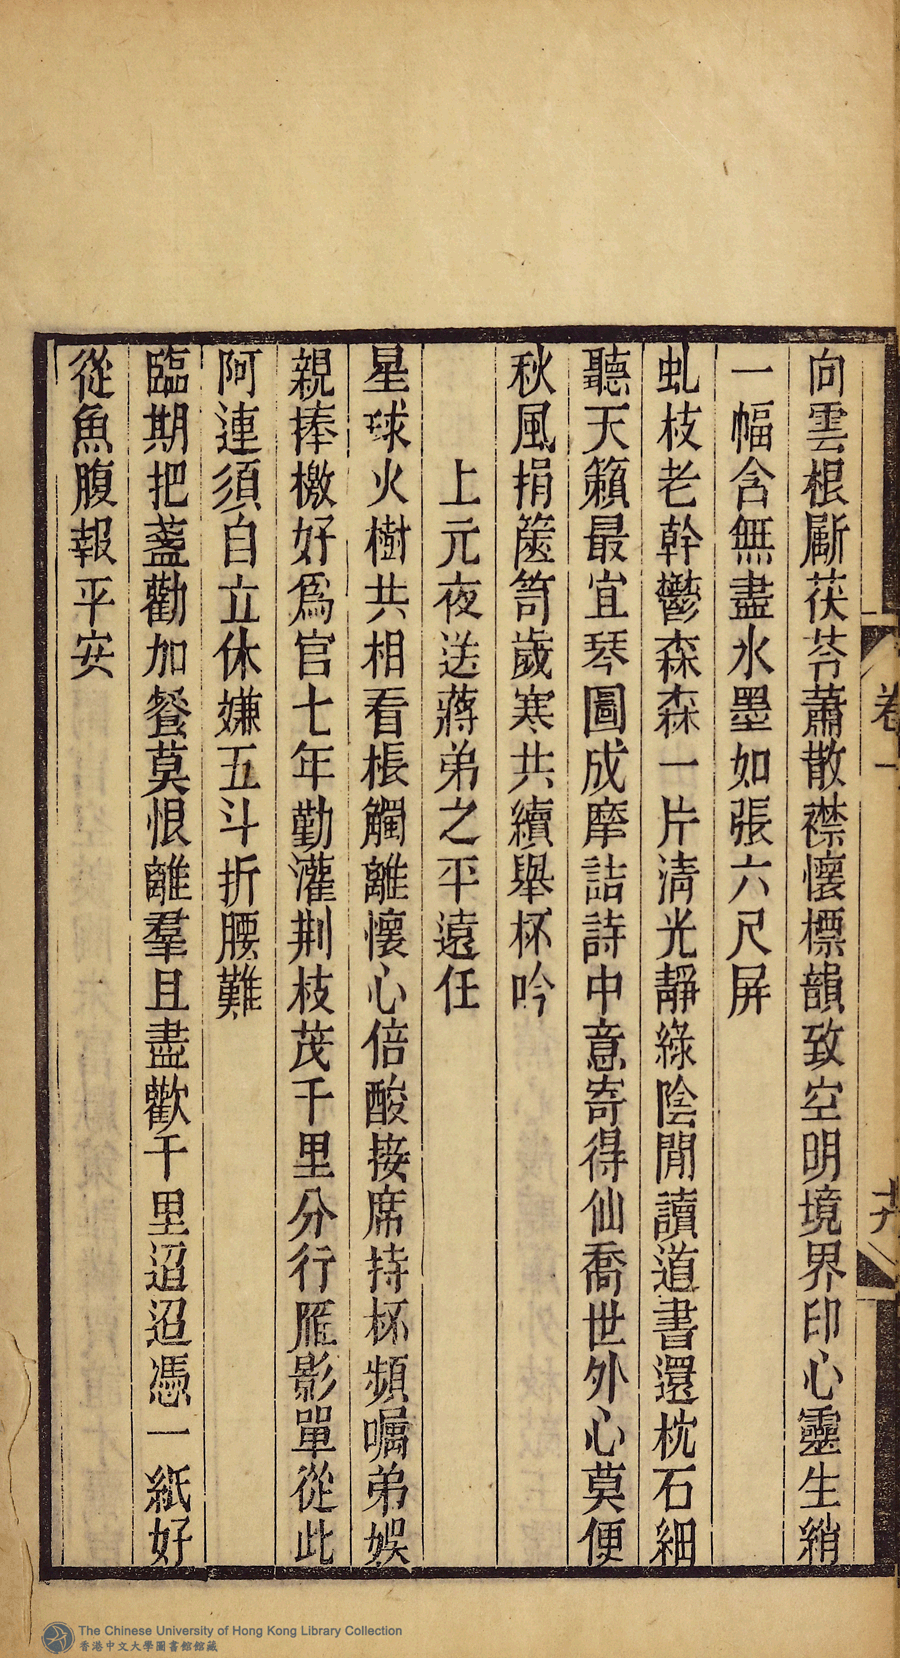 向雲根劚茯苓蕭散襟懷標韻致空明境界印心靈生綃
一幅含無盡水墨如張六尺屏
虬枝老幹鬱森森一片清光靜綠陰閒讀道書還枕石細
聽天籟最宜琴圖成摩詰詩中意寄得仙喬世外心莫便
秋風捐篋笥歲寒共續舉杯吟
上元夜送蔣弟之平遠任
星球火樹共相看棖觸離懷心倍酸接席持杯頻囑弟娛
親捧檄好爲官七年勤灌荆枝茂千里分行雁影單從此
阿連須自立休嫌五斗折腰難
臨期把盞勸加餐莫恨離羣且盡歡千里迢迢憑一紙好
從魚腹報平安
卷一
The Chinese University of Hong Kong Library Collection
香港中文大學圖書館館藏